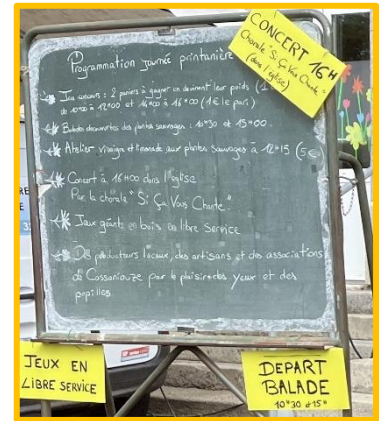 CONCERT 16H
Chorale "Si Ça Vous Chante"
(dans l'église)
Programmation journée printanière
Jeu concours : 2 paniers à gagner en devinant leur poids
de 10H00 à 12H00 et 14H00 à 16H00 (1€ le pari)
Balade découvertes des plantes sauvages : 10H30 et 15H00.
Atelier vinaigre et limonade aux plantes sauvages à 12H15 (5€)
Concert à 16H00 dans l'église
Par la chorale "Si Ça Vous Chante"
Jeux géants en bois en libre service
Des producteurs locaux, des artisans et des associations
de Cassaniouze pour le plaisir des yeux et des
papilles
JEUX EN
LIBRE SERVICE
DEPART
BALADE
10H30 et 15H